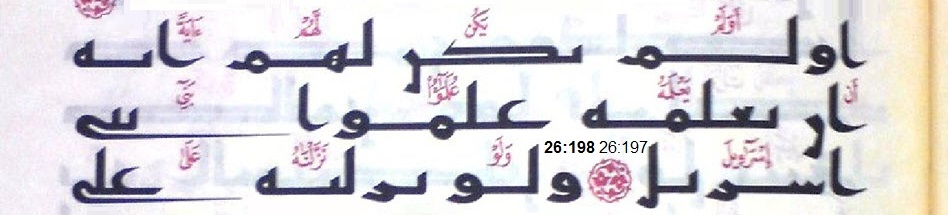 أَوَلَمْ يَكُن لَّهُمْ ءَايَةً
اولم يكن لهم ايه
أَن يَعْلَمَهُۥ عُلَمَٰٓؤُا۟ بَنِىٓ
ان يعلمه علموا بني
إِسْرَٰٓءِيلَ 26:197 26:198 وَلَوْ نَزَّلْنَٰهُ عَلَىٰ
اسريل ولو نزلنه على